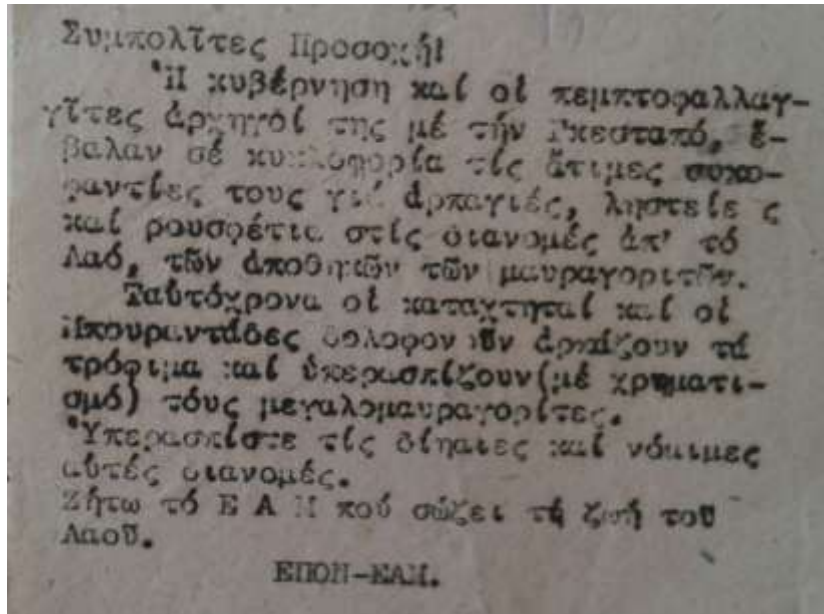 Συμπολῖτες Προσοχή!
Ἡ κυβέρνηση καί οἱ πεμπτοφαλλαγ-
γῖτες ἀρχηγοί της μέ τήν Γκεσταπό, ἔ-
βαλαν σέ κυκλοφορία τίς ἄτιμες συκο-
φαντίες τους γιά ἁρπαγιές, ληστεῖε ς
καί ρουσφέτια στίς διανομές ἀπ' τό
Λαό, τῶν ἀποθηκῶν τῶν μαυραγοριτῶν.
Ταὐτόχρονα οἱ καταχτηταί καί οἱ
Μπουραντάδες δολοφονοῦν ἁρπάζουν τά
τρόφιμα καί ὑπερασπίζουν(μέ χρηματι-
σμό) τούς μεγαλομαυραγορίτες.
Ὑπερασπίστε τίς δίκαιες καί νόμιμες
αὐτές διανομές.
Ζήτω τό Ε Α Μ πού σώζει τή ζωή τοῦ
Λαοῦ.
ΕΠΟΝ-ΕΑΜ.